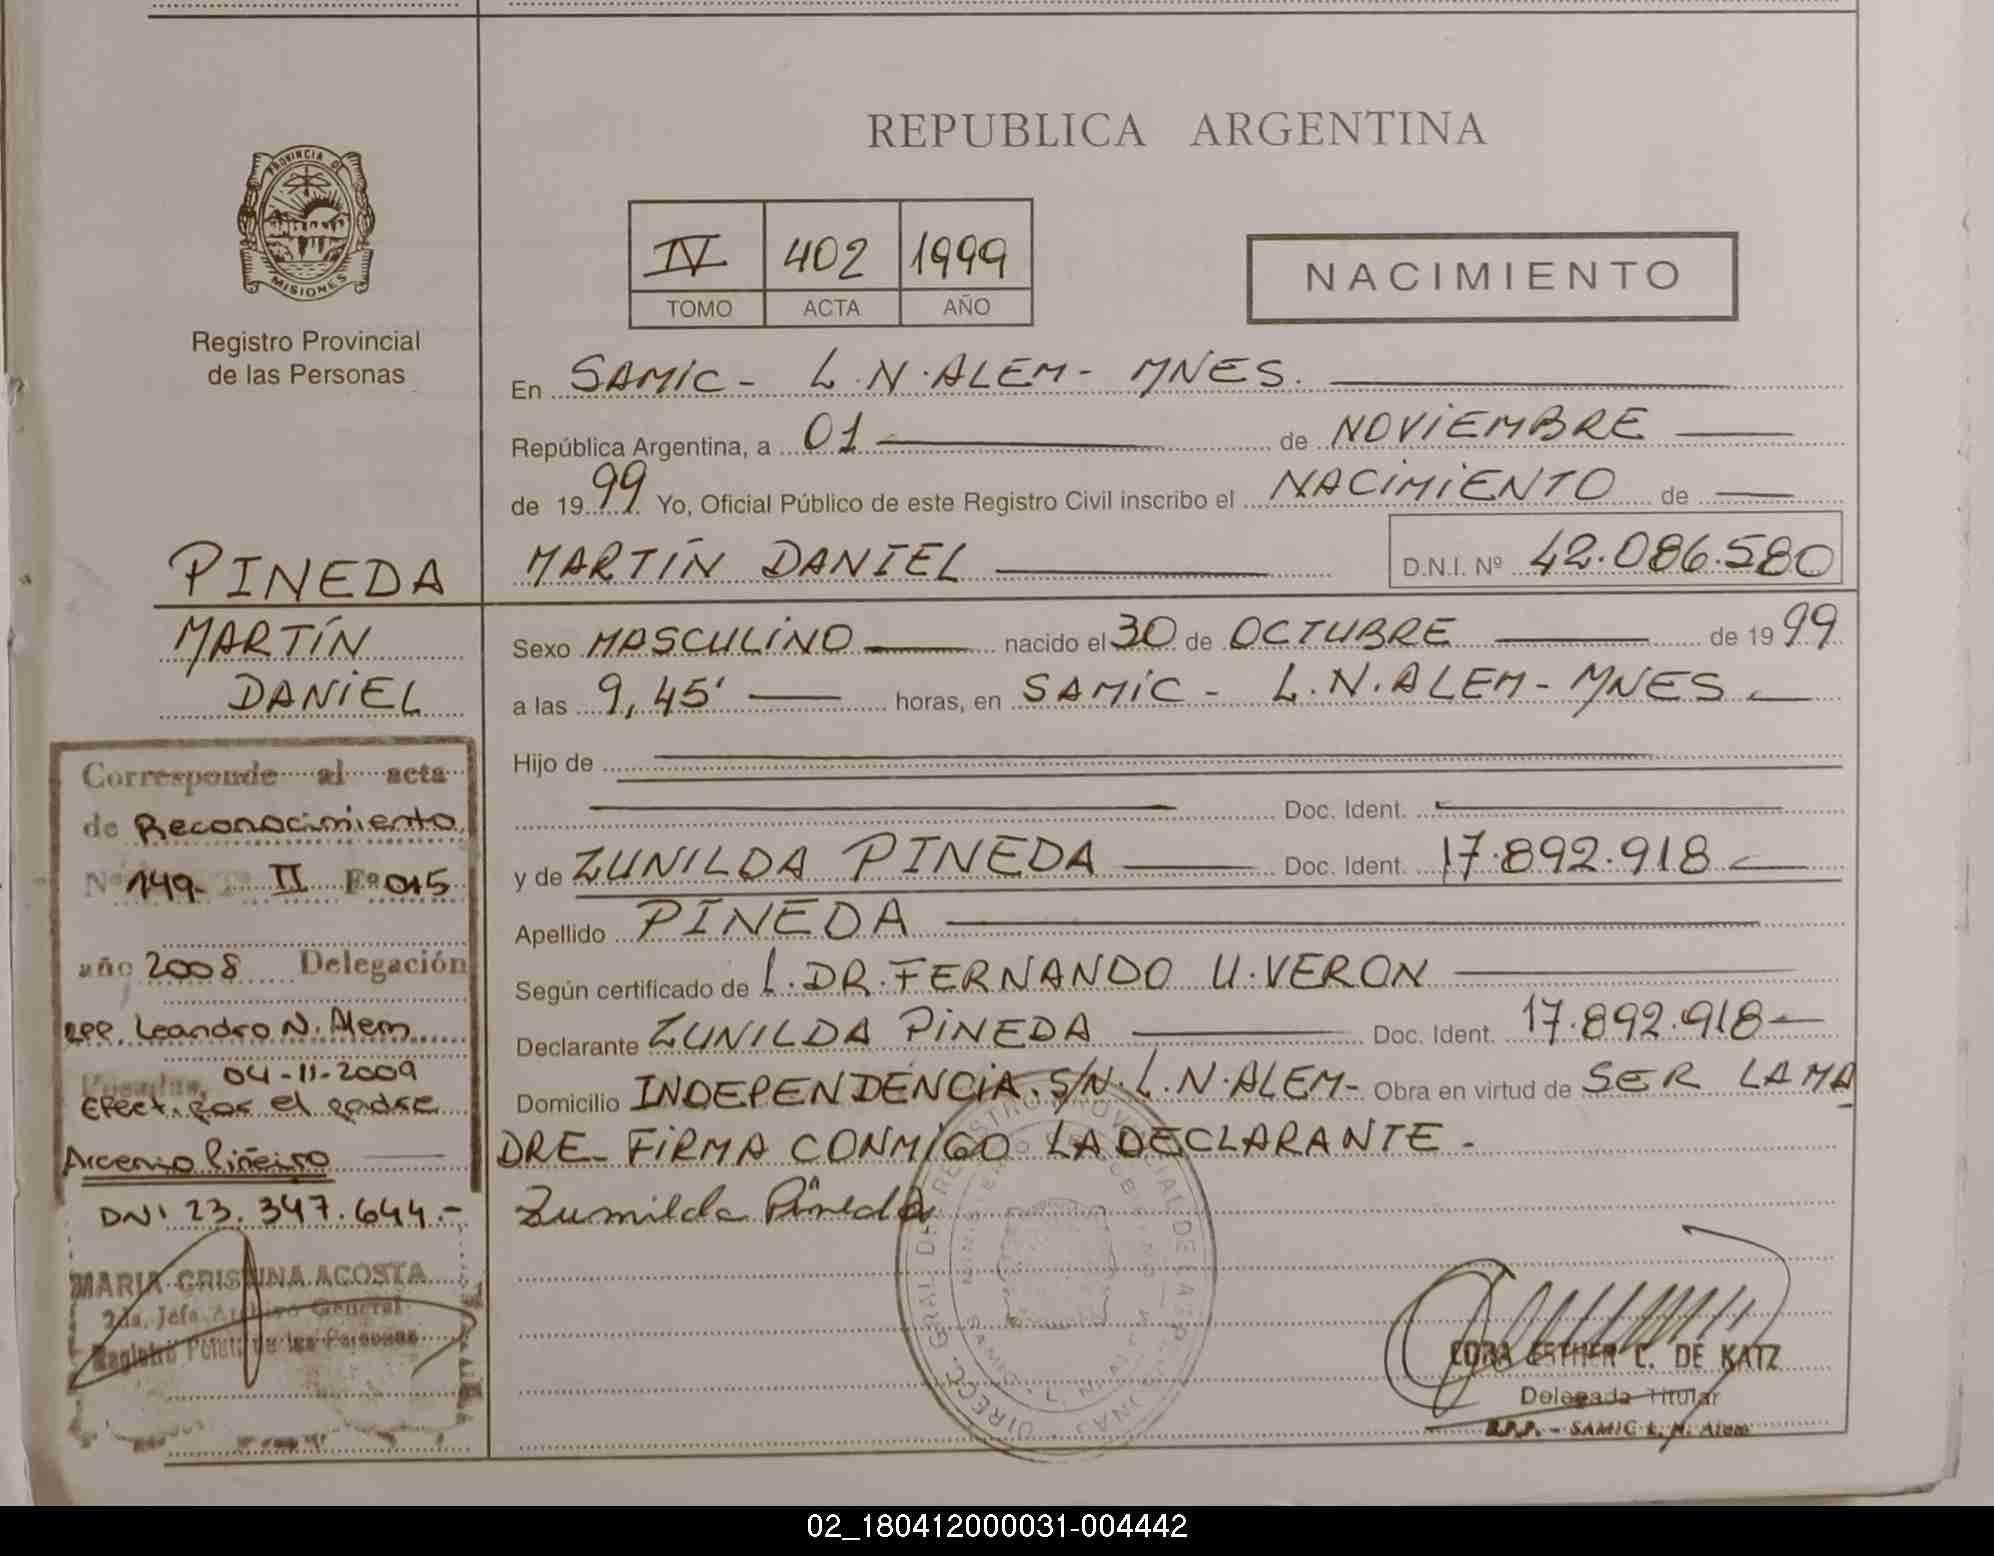 REPUBLICA ARGENTINA
PROVINCIA DE
MISIONES
Registro Provincial
de las Personas
IV 402 1999
TOMO ACTA AÑO
NACIMIENTO
En SAMIC - L.N.ALEM - MNES.
República Argentina, a 01 de NOVIEMBRE
de 1999 Yo, Oficial Público de este Registro Civil inscribo el NACIMIENTO de
MARTÍN DANIEL
D.N.I. Nº 42.086.580
PINEDA
MARTÍN
DANIEL
Sexo MASCULINO nacido el 30 de OCTUBRE de 1999
a las 9,45' horas, en SAMIC - L.N.ALEM - MNES
Hijo de
Doc. Ident.
y de ZUNILDA PINEDA Doc. Ident. 17.892.918
Apellido PINEDA
Según certificado de L.DR.FERNANDO U.VERON
Declarante ZUNILDA PINEDA Doc. Ident. 17.892.918
Domicilio INDEPENDENCIA.S/N.L.N.ALEM- Obra en virtud de SER LA MA
DRE- FIRMA CONMIGO LA DECLARANTE -
Zumilda Pineda
CORA ESTHER C. DE KATZ
Delegada Titular
R.P.P. - SAMIC L. N. Alem
Corresponde al acta
de Reconocimiento
Nº 149- Tº II Fº 015
año 2008 Delegación
RPP. Leandro N. Alem
Posadas, 04-11-2009
Efect. por el padre
Arcenio Piñeiro
DNI 23.347.644.-
MARIA CRISTINA ACOSTA
2da. Jefa Archivo General
Registro de las Personas
02_180412000031-004442